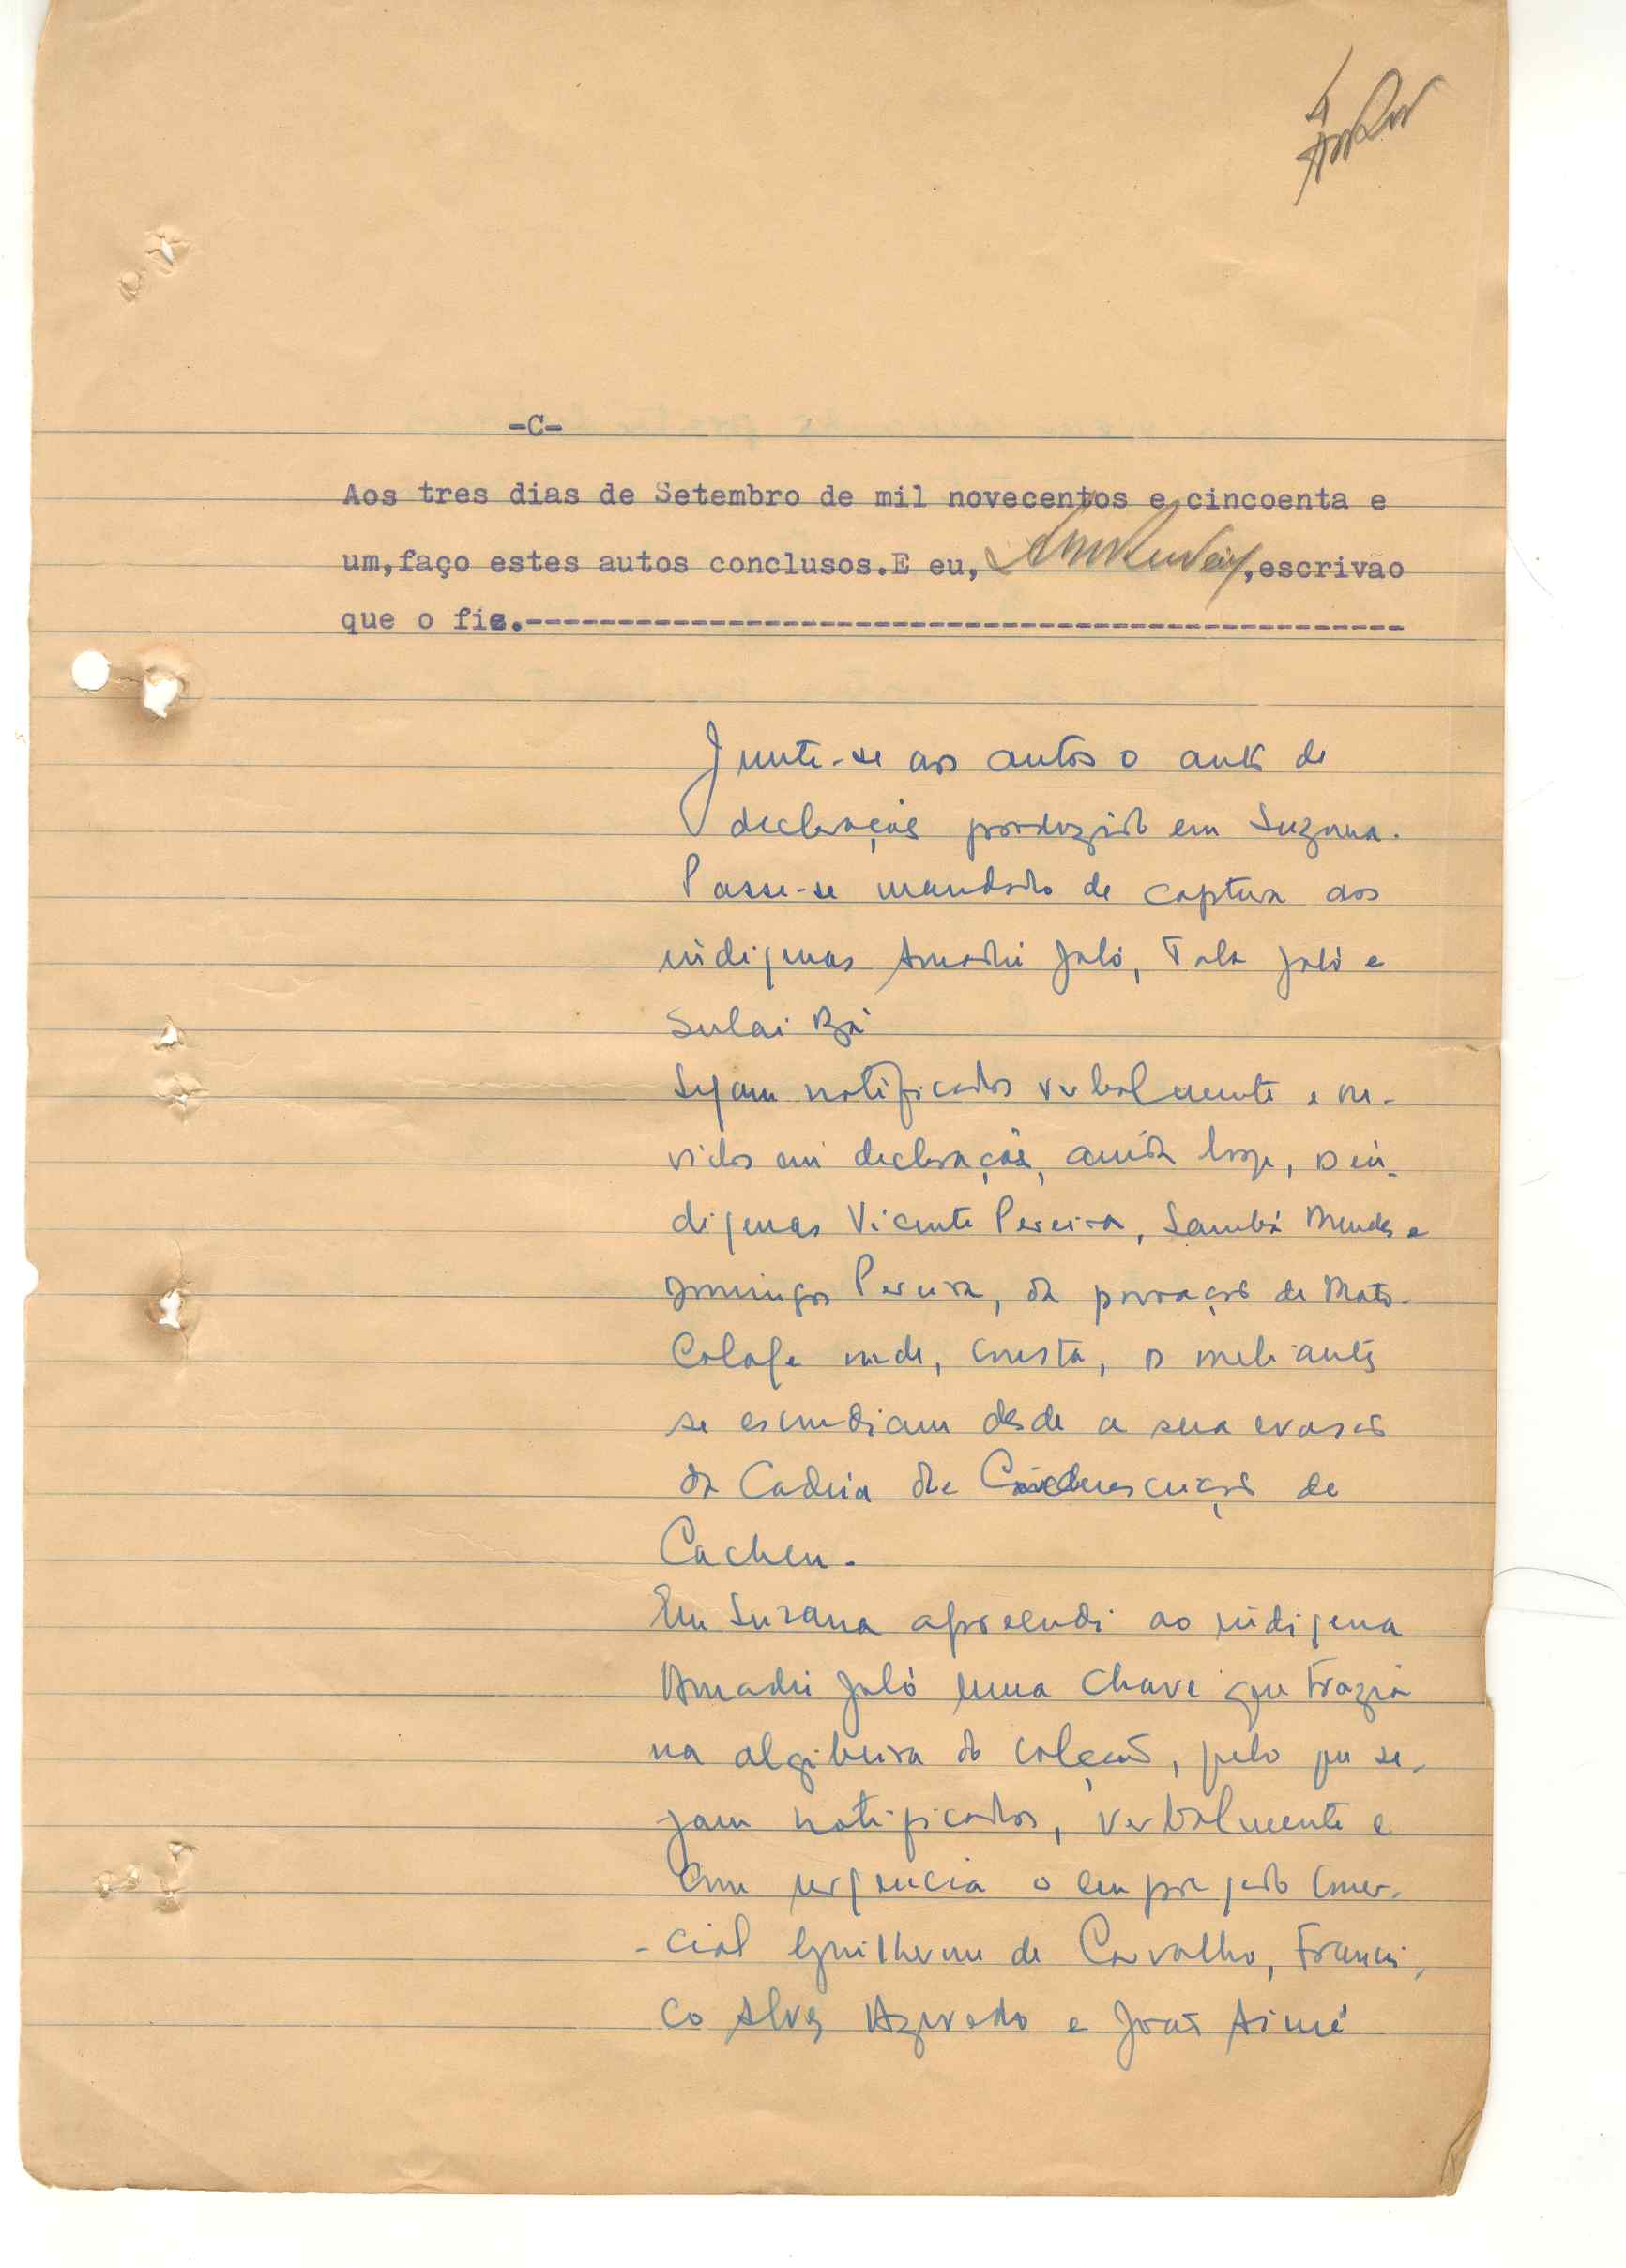 4
-C-
Aos tres dias de Setembro de mil novecentos e cincoenta e
um,faço estes autos conclusos.E eu, ,escrivão
que o fis.------------------------------------------------
Junte-se aos autos o auto de
declaração produzido em Suzana.
Passe-se mandado de captura aos
indigenas Amadú Jaló, Tala Jaló e
Sulai Bá
Sejam notificados verbalmente e ou-
vidos em declaração, ainda hoje, os in-
digenas Vicente Pereira, Sambá Mendes e
Domingos Pereira, da povoação de Mato-
Colafe onde, consta, os meliantes
se escondiam desde a sua evasão
da Cadeia da Circunscrição de
Cacheu.
Em Suzana apreendi ao indigena
Amadú Jaló uma chave que trazia
na algibeira do calção, pelo que se-
jam notificados, verbalmente e
com urgencia o empregado comer-
-cial Guilherme de Carvalho, Francis-
co Alves Azevedo e João Aimé